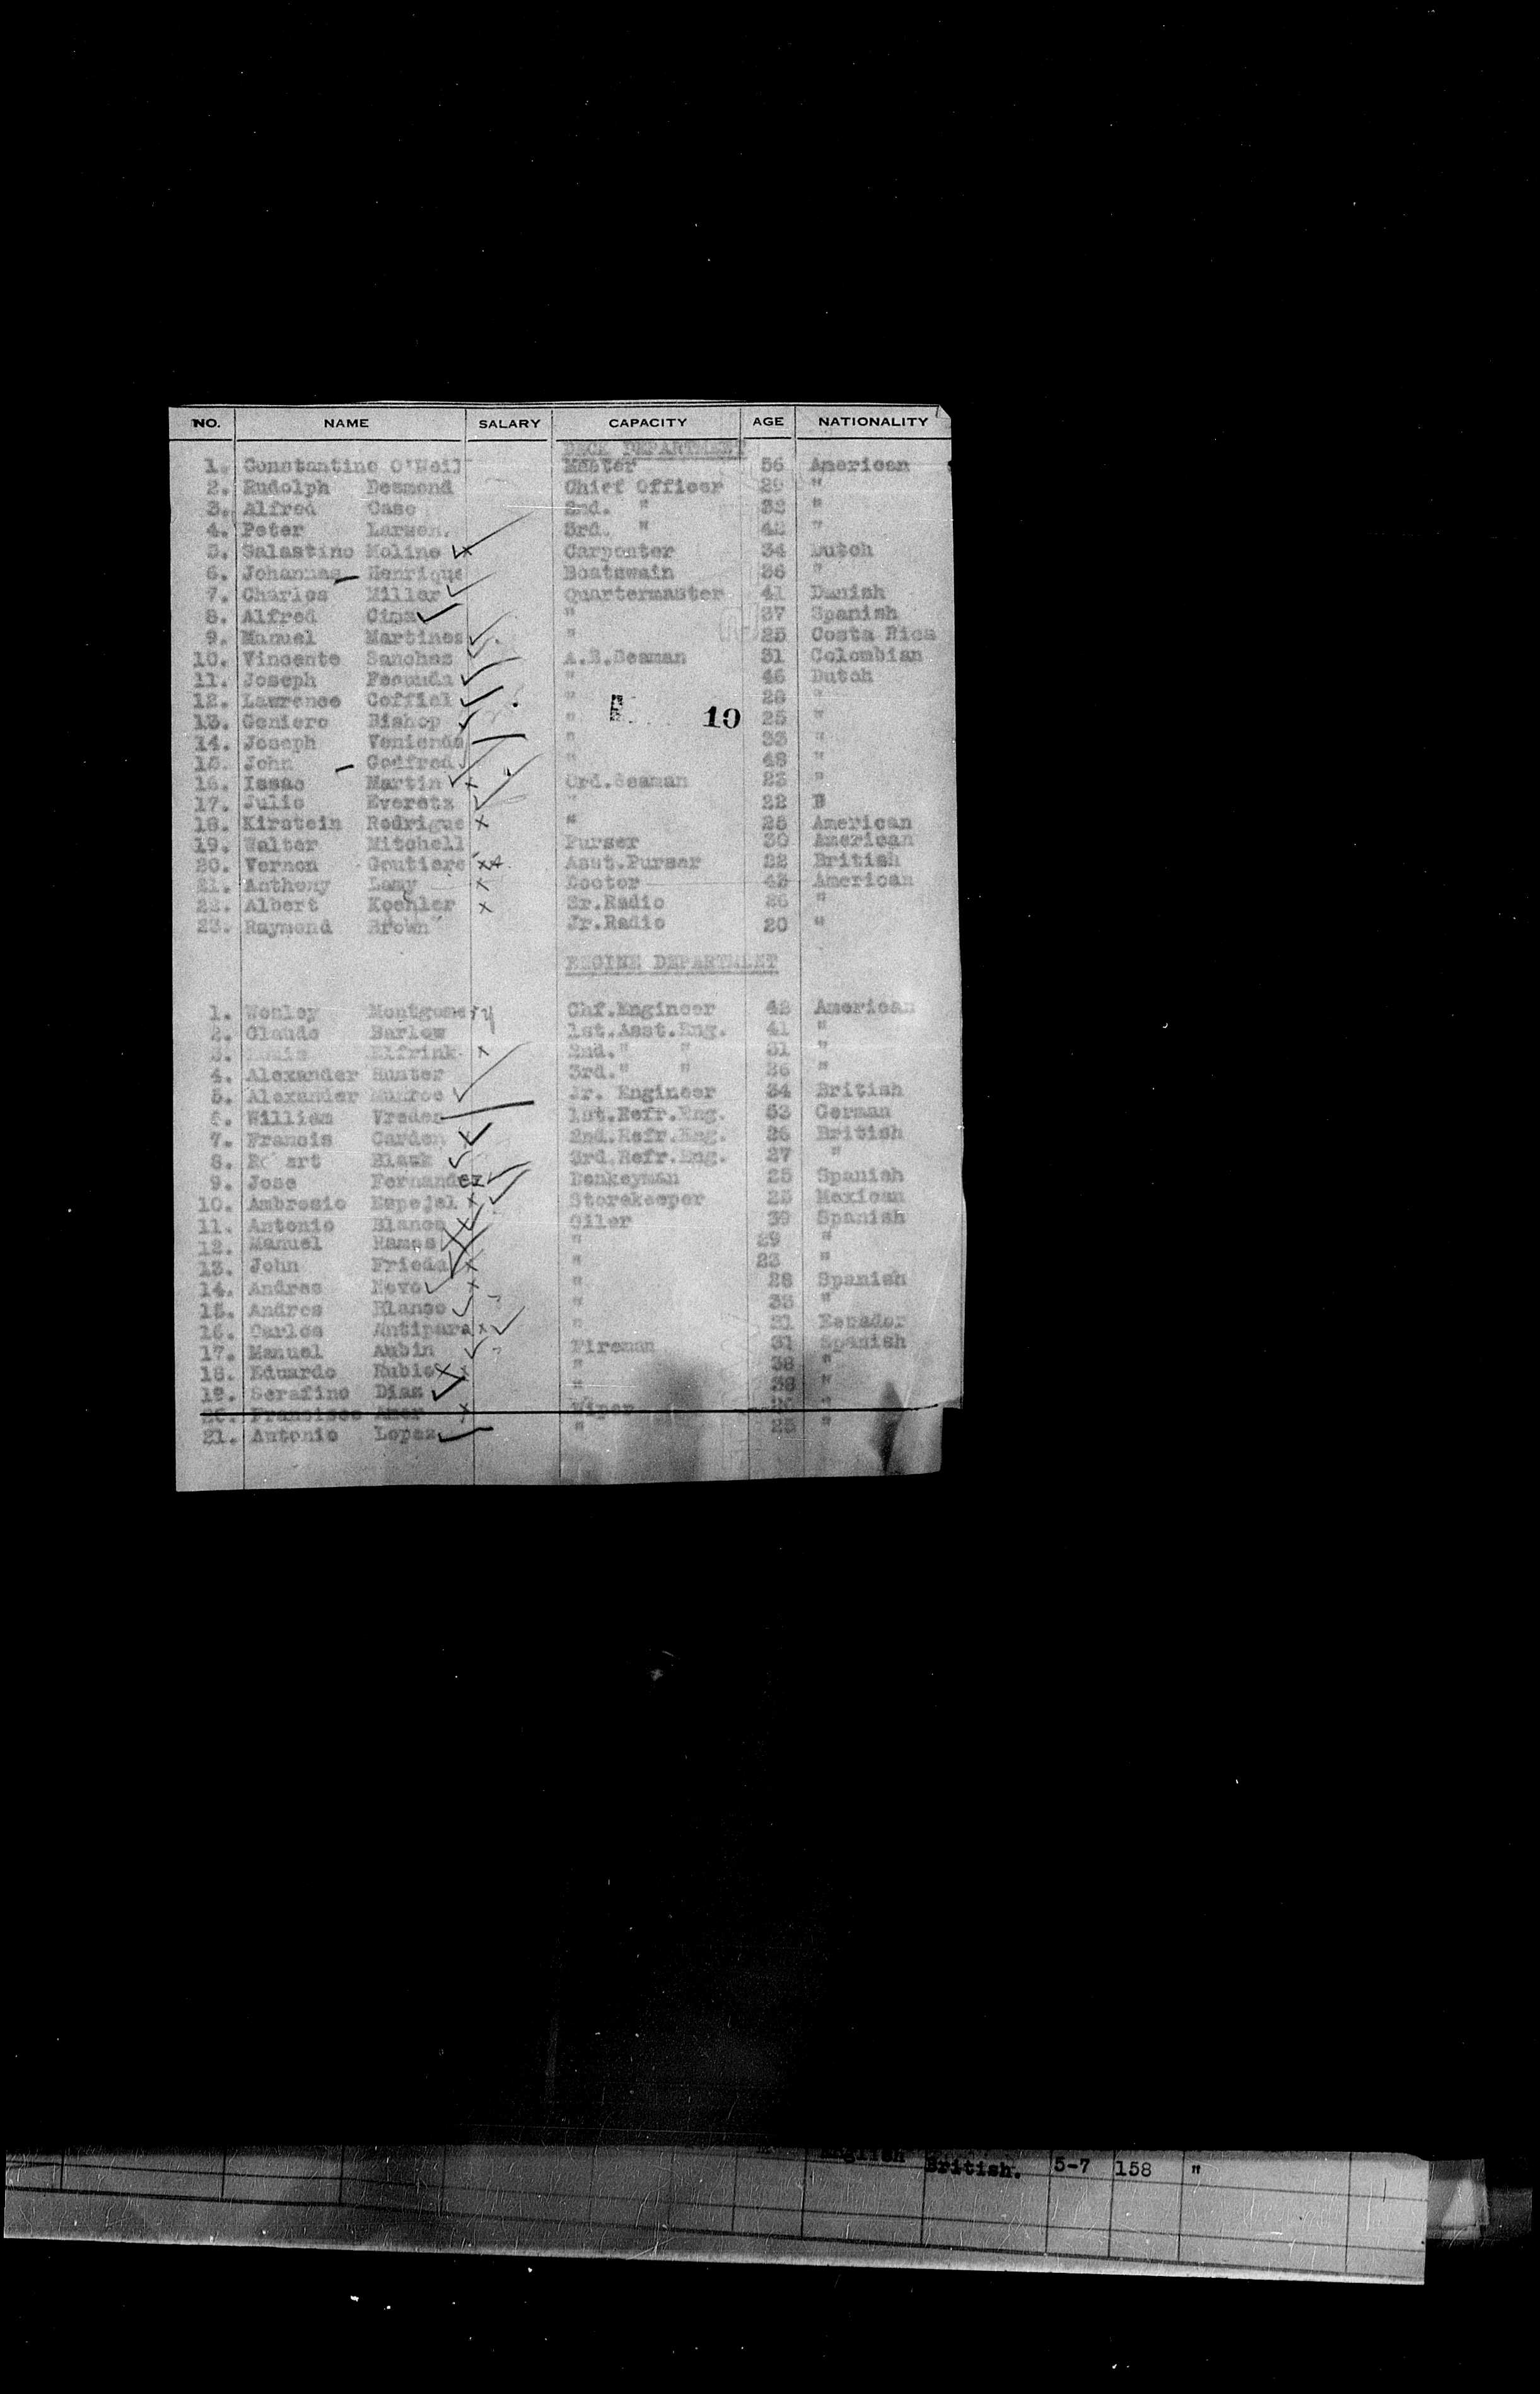 NO. NAME SALARY CAPACITY AGE NATIONALITY
DECK DEPARTMENT
1. Constantine O'Neil Master 56 American
2. Rudolph Desmond Chief Officer 29 "
3. Alfred Case 2nd. " 32 "
4. Peter Larsen. 3rd. " 42 "
5. Salastino Moline Carpenter 34 Dutch
6. Johannas Henrique Boatswain 36 "
7. Charles Miller Quartermaster 41 Danish
8. Alfred Cima " 37 Spanish
9. Manuel Martines " 25 Costa Rica
10. Vincente Sanchez A.B.Seaman 31 Colombian
11. Joseph Fecunda " 46 Dutch
12. Lawrence Coffiel " 28 "
13. Geniero Bishop " 10 25 "
14. Joseph Venienda " 33 "
15. John Godfred " 48 "
16. Issac Martin Ord.Seaman 23 "
17. Julio Everetz " 22 "
18. Kirstein Rodrigue " 25 American
19. Walter Mitchell Purser 30 American
20. Vernon Goutiere Asst.Purser 22 British
21. Anthony Lamy Doctor 43 American
22. Albert Koehler Sr.Radio 26 "
23. Raymond Brown Jr.Radio 20 "
ENGINE DEPARTMENT
1. Wonley Montgomery Chf.Engineer 42 American
2. Claude Barlow 1st.Asst.Eng. 41 "
3. Elfrink 2nd." " 31 "
4. Alexander Hunter 3rd." " 26 "
5. Alexander Munroe Jr. Engineer 34 British
6. William Vreden 1st.Refr.Eng. 53 German
7. Francis Carden 2nd.Refr.Eng. 26 British
8. Black 3rd.Refr.Eng. 27 "
9. Jose Fernandez Donkeyman 25 Spanish
10. Ambrosio Espejel Storekeeper 25 Mexican
11. Antonio Blanco Oiler 39 Spanish
12. Manuel Ramos " 29 "
13. John Frieda " 23 "
14. Andres Novo " 28 Spanish
15. Andres Blanco " 33 "
16. Carlos Antipara " 21 Ecuador
17. Manuel Aubin Fireman 31 Spanish
18. Eduardo Rubio " 38 "
19. Serafino Dias " 38 "
20. Francisco Amor Wiper "
21. Antonio Lopez " 25 "
English British. 5-7 158 "